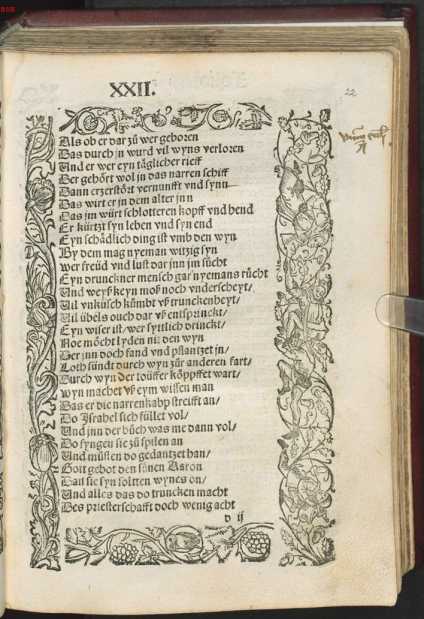 XXII.
22
Als ob er dar zů wer geboren
Das durch jn wurd vil wyns verloren
Und er wer eyn täglicher rieff
Der gehört wol jn das narren schiff
Dann er zerstört vernunfft vnd synn
Das wirt er jn dem alter jnn
Das jm würt schlotteren kopff vnd hend
Er kürtzt syn leben vnd syn end
Eyn schädlich ding ist vmb den wyn
By dem mag nyeman witzig syn
wer freüd vnd lust dar jnn jm sücht
Eyn drunckner mensch gar nyemans rücht
Und weyß keyn moß noch vnderscheyt/
Vil vnküsch kůmbt vß trunckenheyt/
Vil übels ouch dar vß entspringt/
Eyn wiser ist/wer syttlich drinckt/
Noe möcht lyden nit den wyn
Der jnn doch fand vnd pflantzet jn/
Loth sündt durch wyn zůr anderen fart/
Durch wyn der töuffer köppffet wart/
wyn machet vß eym wissen man
Das er die narrenkapp streifft an/
Do Israhel sich füllet vol/
Und jnn der büch was me dann vol/
Do fyngen sie zů spilen an
Und müsten do gedantzet han/
Gott gebot den sünen Aaron
Das sie syn soltten wynes on/
Und alles das do truncken macht
Des priesterschafft doch wenig acht
d ij